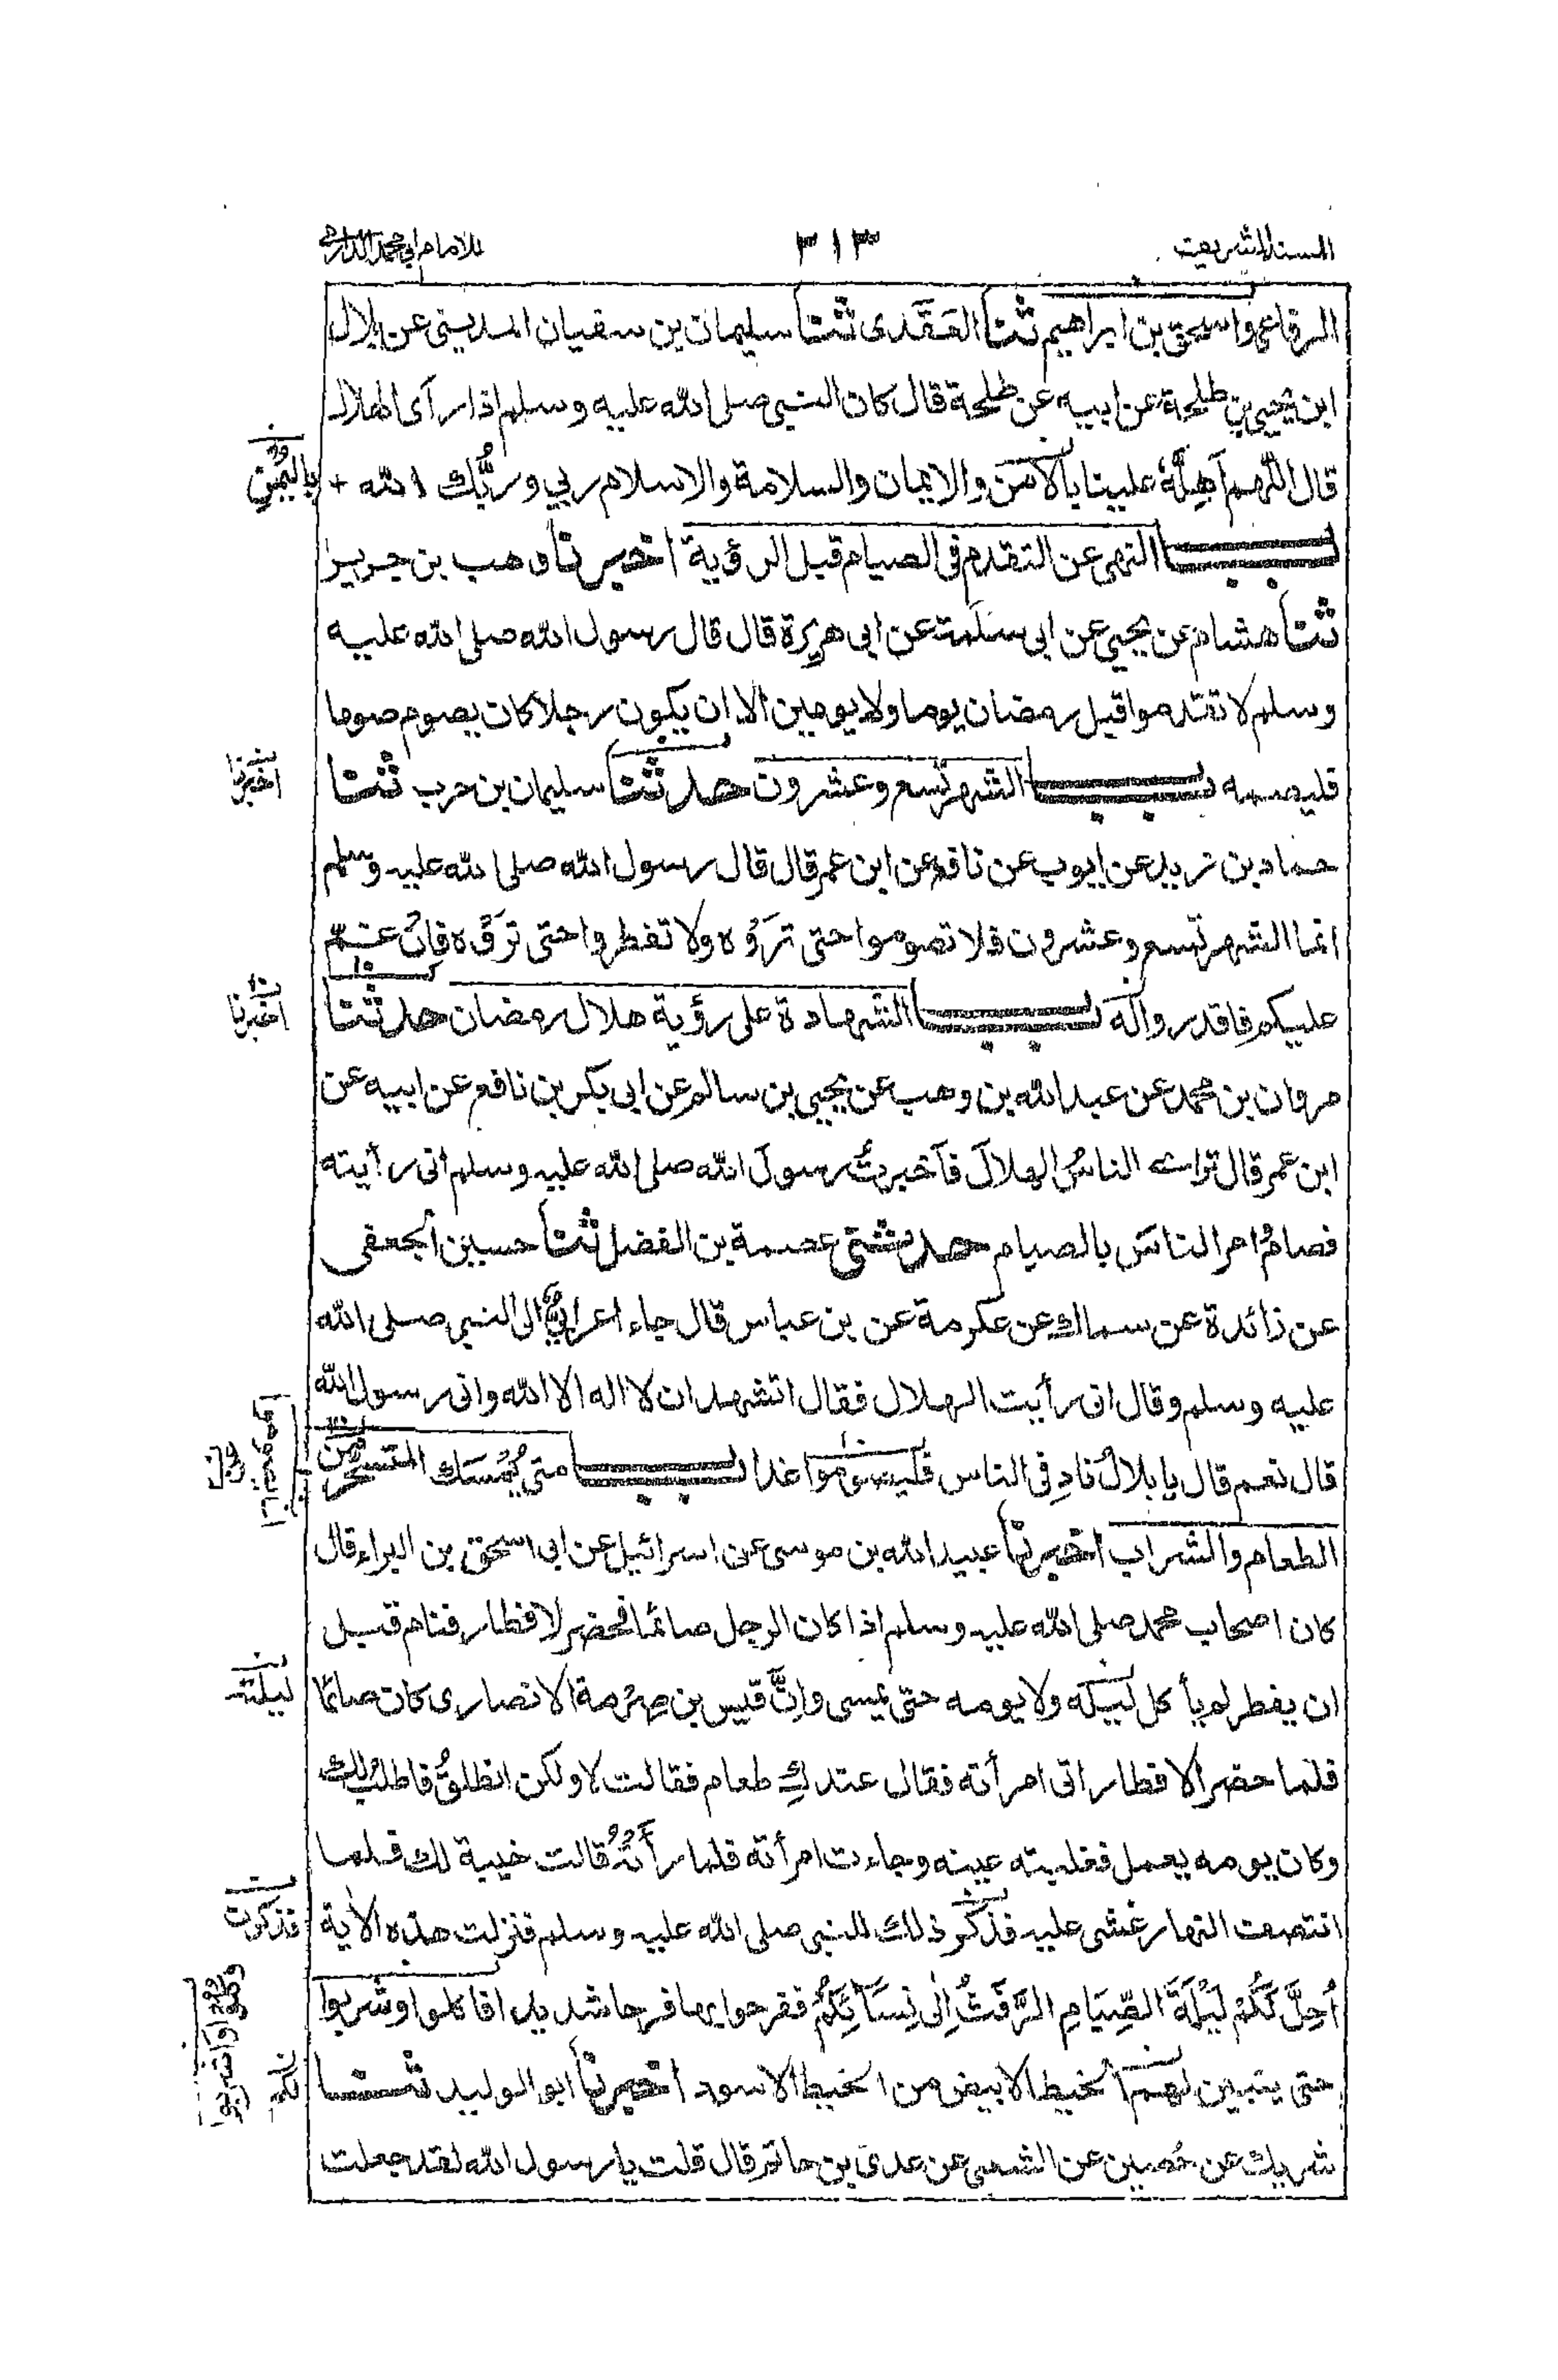 السند الشريف ٣١٣ للامام ابي محمد الدارمي
الرفاعي واسحق بن ابراهيم ثنا العَقَدى ثنا سليمان بن سفيان المديني عن بلال
ابن يحيى بن طلحة عن ابيه عن طلحة قال كان النبي صلى الله عليه وسلم اذا رآى الهلال
قال اللّهم اَهِلَّهُ علينا بالامَن والايمان والسلامة والاسلام ربي وربُّك الله +
باليُمْنِ
بــاب النهى عن التقدم فى الصيام قبل الرؤية اخبرنا وهب بن جرير
ثنا هشام عن يحيى عن ابى سلَمة عن ابى هريرة قال قال رسول الله صلى الله عليه
وسلم لا تقدموا قبل رمضان يوما ولا يومين الا ان يكون رجلا كان يصوم صوما
فليصمه بــاب الشهر تسع وعشرون حدثنا سليمان بن حرب ثنا
اخبرنا
حماد بن زيد عن ايوب عن نافع عن ابن عمر قال قال رسول الله صلى الله عليه وسلم
انما الشهر تسع وعشرون فلا تصوموا حتى ترَوُه ولا تفطروا حتى ترَوْه فان غُمّ
عليكم فاقدروا له بــاب الشهادة على رؤية هلال رمضان حدثنا
اخبرنا
مروان بن محمد عن عبد الله بن وهب عن يحيى بن سالم عن ابى بكر بن نافع عن ابيه عن
ابن عمر قال تراءى الناسُ الهلالَ فاَخبرتُ رسولَ الله صلى الله عليه وسلم انى رأيته
فصامُ امر الناسَ بالصيام حدثنى عصمة بن الفضل ثنا حسين الجعفى
عن زائدة عن سماك عن عكرمة عن بن عباس قال جاء اعرابيٌّ الى النبي صلى الله
عليه وسلم وقال انى رأيت الهلال فقال اتشهد ان لا اله الا الله وانى رسول الله
قال نعم قال يا بلالُ نادِ فى الناس فليصوموا غدا بــاب متى يُمْسَك المتسحّر من
الطعام والشراب اخبرنا عبيد الله بن موسى عن اسرائيل عن ابى اسحق بن البراء قال
كان اصحاب محمد صلى الله عليه وسلم اذا كان الرجل صائما فحضر لافطار فنام قبل
ان يفطر لم يأكل ليله ولا يومه حتى يمسى وانَّ قيس بن صِرْمة الانصارى كان صائما
ليلته
فلما حضر الافطار اتى امرأته فقال عندكِ طعام فقالت لا ولكن انطلقُ فاطلبُ لك
وكان يومه يعمل فغلبته عينه وجاءت امرأته فلما رأَتْهُ قالت خيبة لك فلما
انتصف النهار غشى عليه فذكر ذلك للنبي صلى الله عليه وسلم فنزلت هذه الاٰية
فذكرت
أُحِلَّ لَكُمْ لَيْلَةَ الصِّيَامِ الرَّفَثُ اِلٰى نِسَآئِكُمْ ففرحوا بها فرحا شديدا فاكلوا وشربوا
وكلوا واشربوا
حتى يتبين لهم الخيط الابيض من الخيط الاسود اخبرنا ابو الوليد ثنا
لكم
شريك عن حُصين عن الشعبى عن عدى بن حاتم قال قلت يا رسول الله لقد جعلت